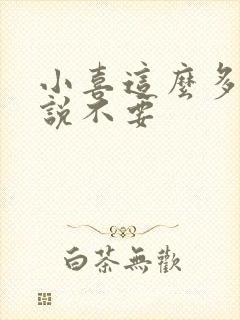 小喜這麼多
說不要
白茶無歡